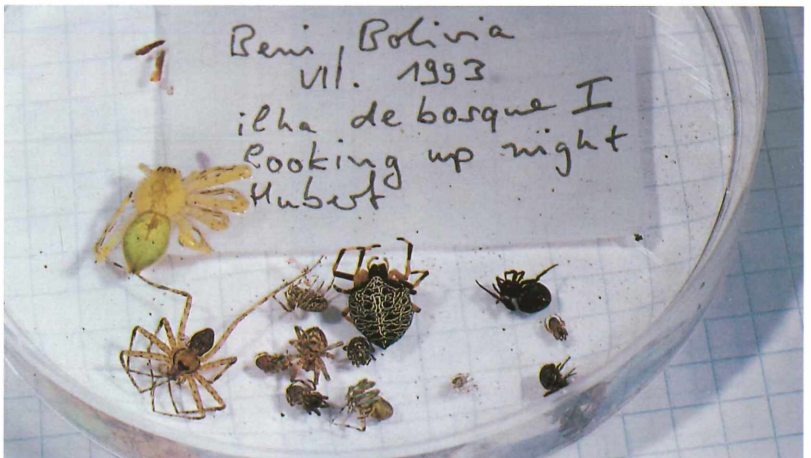 Beni, Bolivia
VII. 1993
ilha de bosque I
looking up night
Hubert